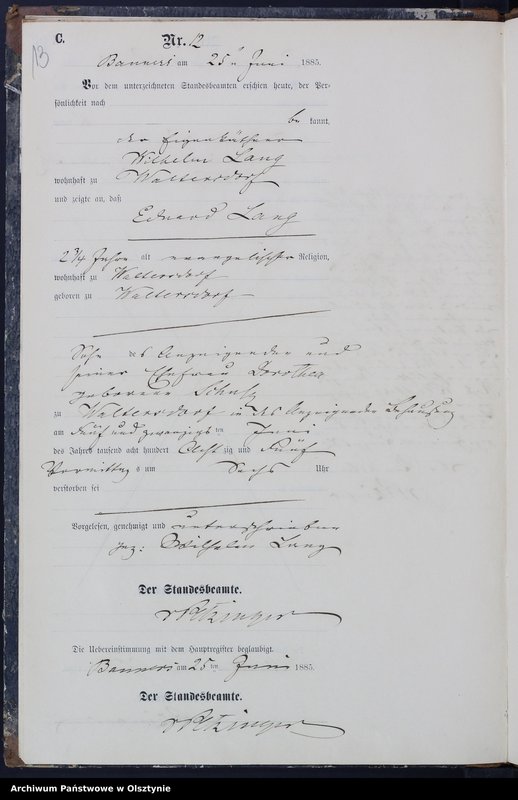 13
C.
Nr. 12
Banners am 25ten Juni 1885.
Vor dem unterzeichneten Standesbeamten erschien heute, der Per-
sönlichkeit nach
be kannt,
der Eigenkäthner
Wilhelm Lang
wohnhaft zu Waltersdorf
und zeigte an, daß
Eduard Lang
2 3/4 Jahre alt evangelischer Religion,
wohnhaft zu Waltersdorf
geboren zu Waltersdorf
Sohn des Anzeigenden und
seiner Ehefrau Dorothea
geborene Schulz
zu Waltersdorf in des Anzeigenden Behausung
am Fünf und zwanzigsten Juni
des Jahres tausend acht hundert Acht zig und Fünf
Vormittag s um Sechs Uhr
verstorben sei
Vorgelesen, genehmigt und unterschrieben
gez: Wilhelm Lang
Der Standesbeamte.
Die Uebereinstimmung mit dem Hauptregister beglaubigt.
Banners am 25 ten Juni 1885.
Der Standesbeamte.
Archiwum Państwowe w Olsztynie